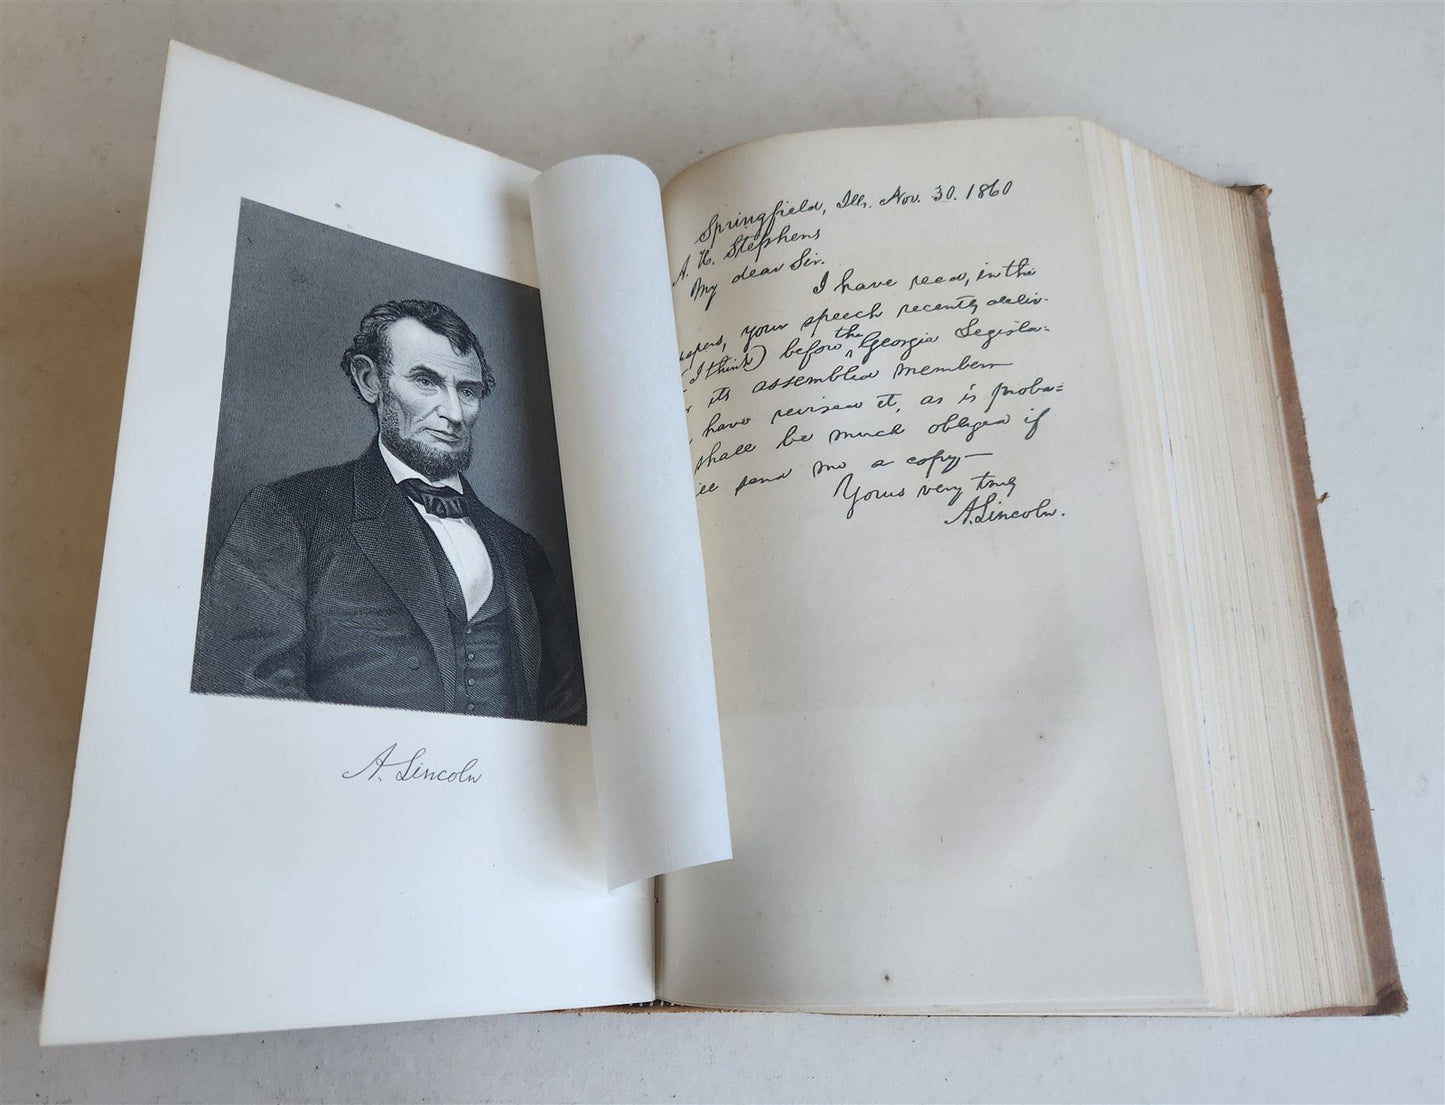 A. Lincoln
Springfield, Ills. Nov. 30. 1860
A. H. Stephens
My dear Sir.
I have read, in the
papers, your speech recently deliv-
I think) before the Georgia Legisla=
its assembled members
have revised it, as is proba=
shall be much obliged if
send me a copy—
Yours very truly
A. Lincoln.